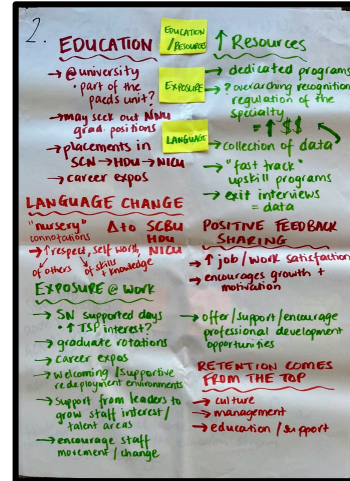 2.
EDUCATION
→ @university
• part of the
paeds unit?
→ may seek out NNU
grad. positions
→ placements in
SCN → HDU → NICU
→ career expos
LANGUAGE CHANGE
"nursery" Δ to SCBU
connotations HDU
→ ↑ respect, self worth, NICU
of others of skills
+ knowledge
EXPOSURE @ WORK
→ SN supported days
• ↑ TSP interest?
→ graduate rotations
→ career expos
→ welcoming / supportive
redeployment environments
→ support from leaders to
grow staff interest /
talent areas
→ encourage staff
movement / change
EDUCATION
/ RESOURCES
EXPOSURE
LANGUAGE
↑ Resources
→ dedicated programs
→ ? overarching recognition
regulation of the
specialty
= ↑ $$
→ collection of data
→ "fast track"
upskill programs
→ exit interviews
= data
POSITIVE FEEDBACK
SHARING
→ ↑ job / work satisfaction
→ encourages growth +
motivation
→ offer / support / encourage
professional development
opportunities
RETENTION COMES
FROM THE TOP
→ culture
→ management
→ education / support